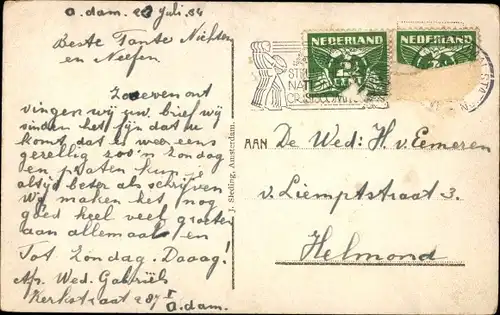 A.dam. 23 Juli. 34
Beste Tante Nichten
en Neefen
Zoeven ont
vingen wij uw. brief wij
vinden het fijn dat u
komt dat is weer eens
gezellig zoo'n Zondag
en praten kun je
altijd beter als schrijven
Wij maken het nog
goed heel veel groeten
aan allemaal en
Tot Zondag. Daaag!
Afz. Wed. Gabriëls
Kerkstraat 287 I
A.dam.
J. Sleding, Amsterdam.
NEDERLAND
CENT
NEDERLAND
NAT
CRISISCOMITE
AAN De Wed: H. v. Eemeren
v. Liemptstraat 3.
Helmond